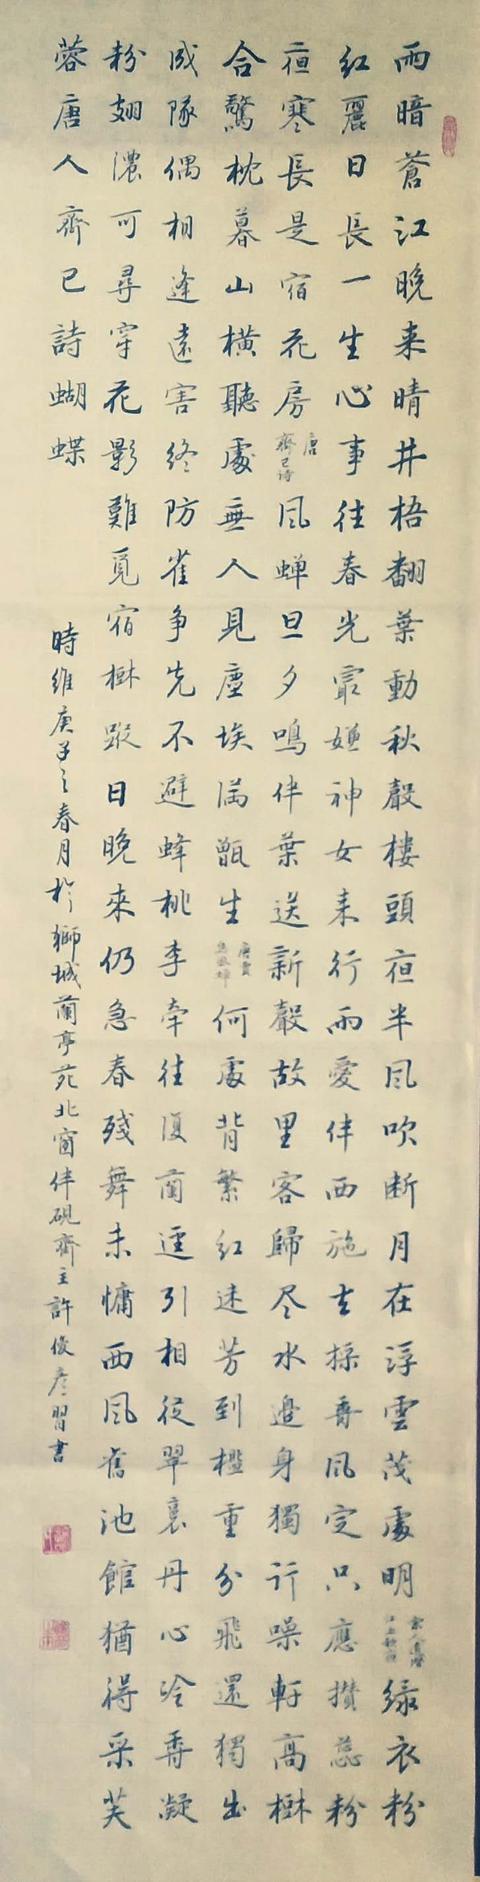 雨暗蒼江晚来晴井梧翻葉動秋聲樓頭夜半風吹断月在浮雲茂處明
綠衣粉
红麗日長一生心事住春光最嫌神女来行雨愛伴西施去採香風定只應攒蕊粉
夜寒長是宿花房
唐
齊己詩
風蝉旦夕鳴伴葉送新聲故里客歸尽水邊身獨行噪軒高樹
合驚枕暮山横聽處無人見塵埃满甑生
何處背繁红迷芳到檻重分飛還獨出
成隊偶相逢遠害終防雀争先不避蜂桃李牽往復蘭蕙引相從翠裛丹心冷香凝
粉翅濃可尋穿花影難覓宿樹蹤日晚來仍急春殘舞未慵西風舊池館猶得采芙
蓉唐人齊己詩蝴蝶
時維庚子之春月於獅城蘭亭苑北窗伴硯齊主許俊彦習書